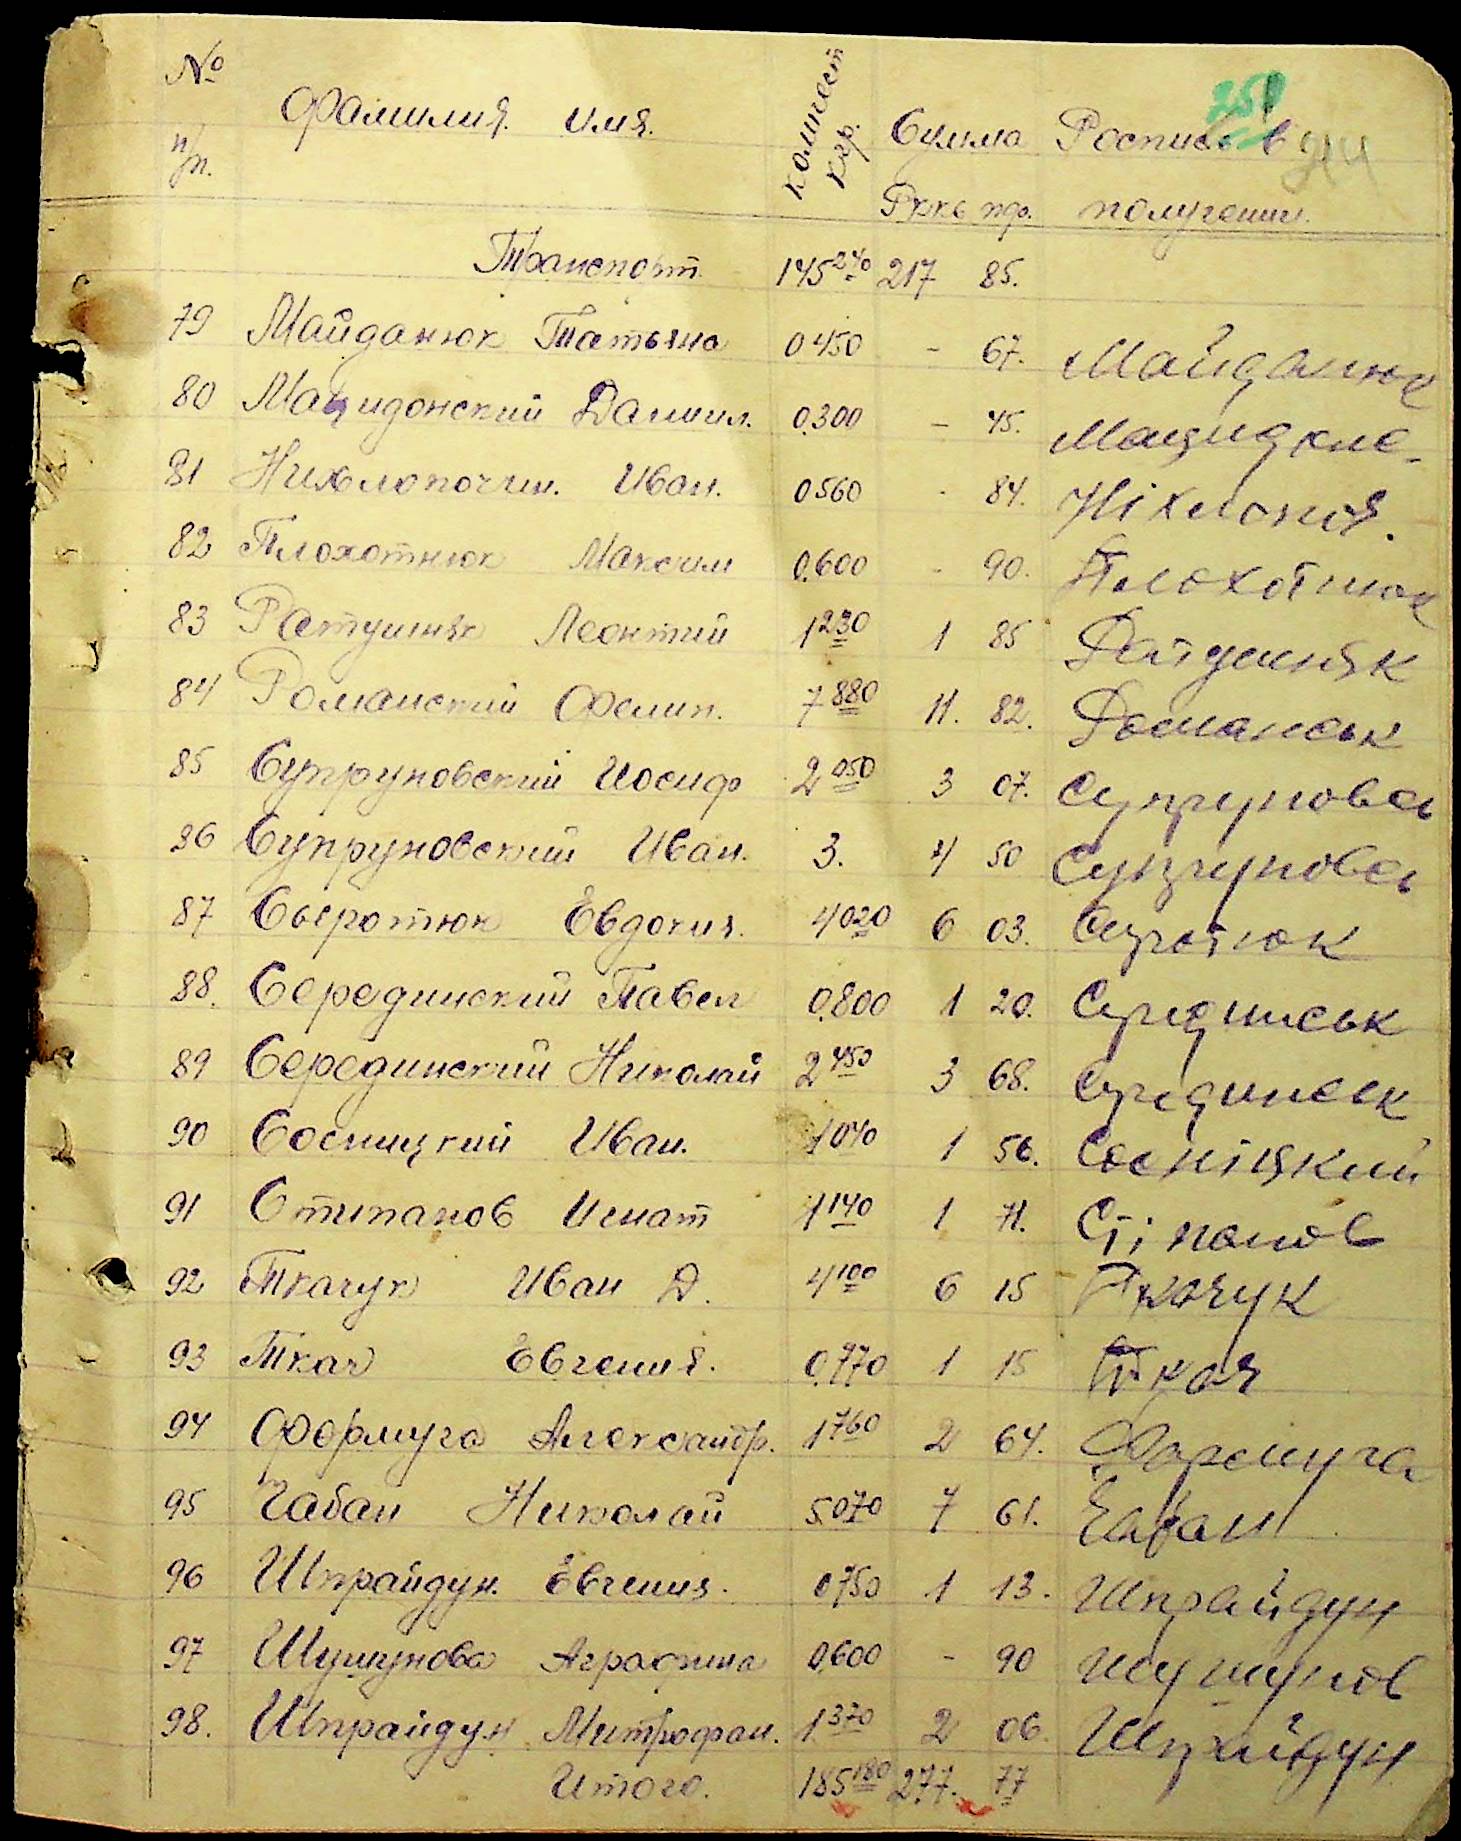 № п/п. Фамилия. Имя. Количест кгр. Сумма Роспись в
Рккв пфо. получении.
Транспорт 145 240 217 85.
79 Майданюк Татьяна 0450 - 67. Майданюк
80 Мацидонский Даниил. 0.300 - 45. Мацидкие
81 Нихлопочин. Иван. 0560 - 84. Ніхлопоч.
82 Плохотнюк Максим 0.600 - 90. Плохотнюк
83 Ратушняк Леонтий 1 230 1 85 Ратушняк
84 Романский Фелик. 7 880 11. 82. Романськ
85 Супруновский Иосиф 2 050 3 07. Супрунова
86 Супруновский Иван. 3. 4 50 Супрунова
87 Сыротюк Евдокия. 4020 6 03. Сиротюк
88. Серединский Павел 0.800 1 20. Сридинськ
89 Серединский Николай 2 450 3 68. Сридинськ
90 Сосницкий Иван. 1040 1 56. Сосніцкий
91 Стипанов Игнат 1 140 1 71. Стіпанов
92 Ткачук Иван Д. 4 100 6 15 Ткачук
93 Ткач Евгения. 0.770 1 15 Ткач
94 Формуга Александр. 1 760 2 64. Формуга
95 Чабан Николай 5.070 7 61. Чабан
96 Шпрайдун. Евгения. 0750 1 13. Шпрайдун
97 Шушунова Аграфина 0.600 - 90 Шушунов
98. Шпрайдун Митрофан. 1. 370 2 06. Шпрайдун
Итого. 185 180 277. 77